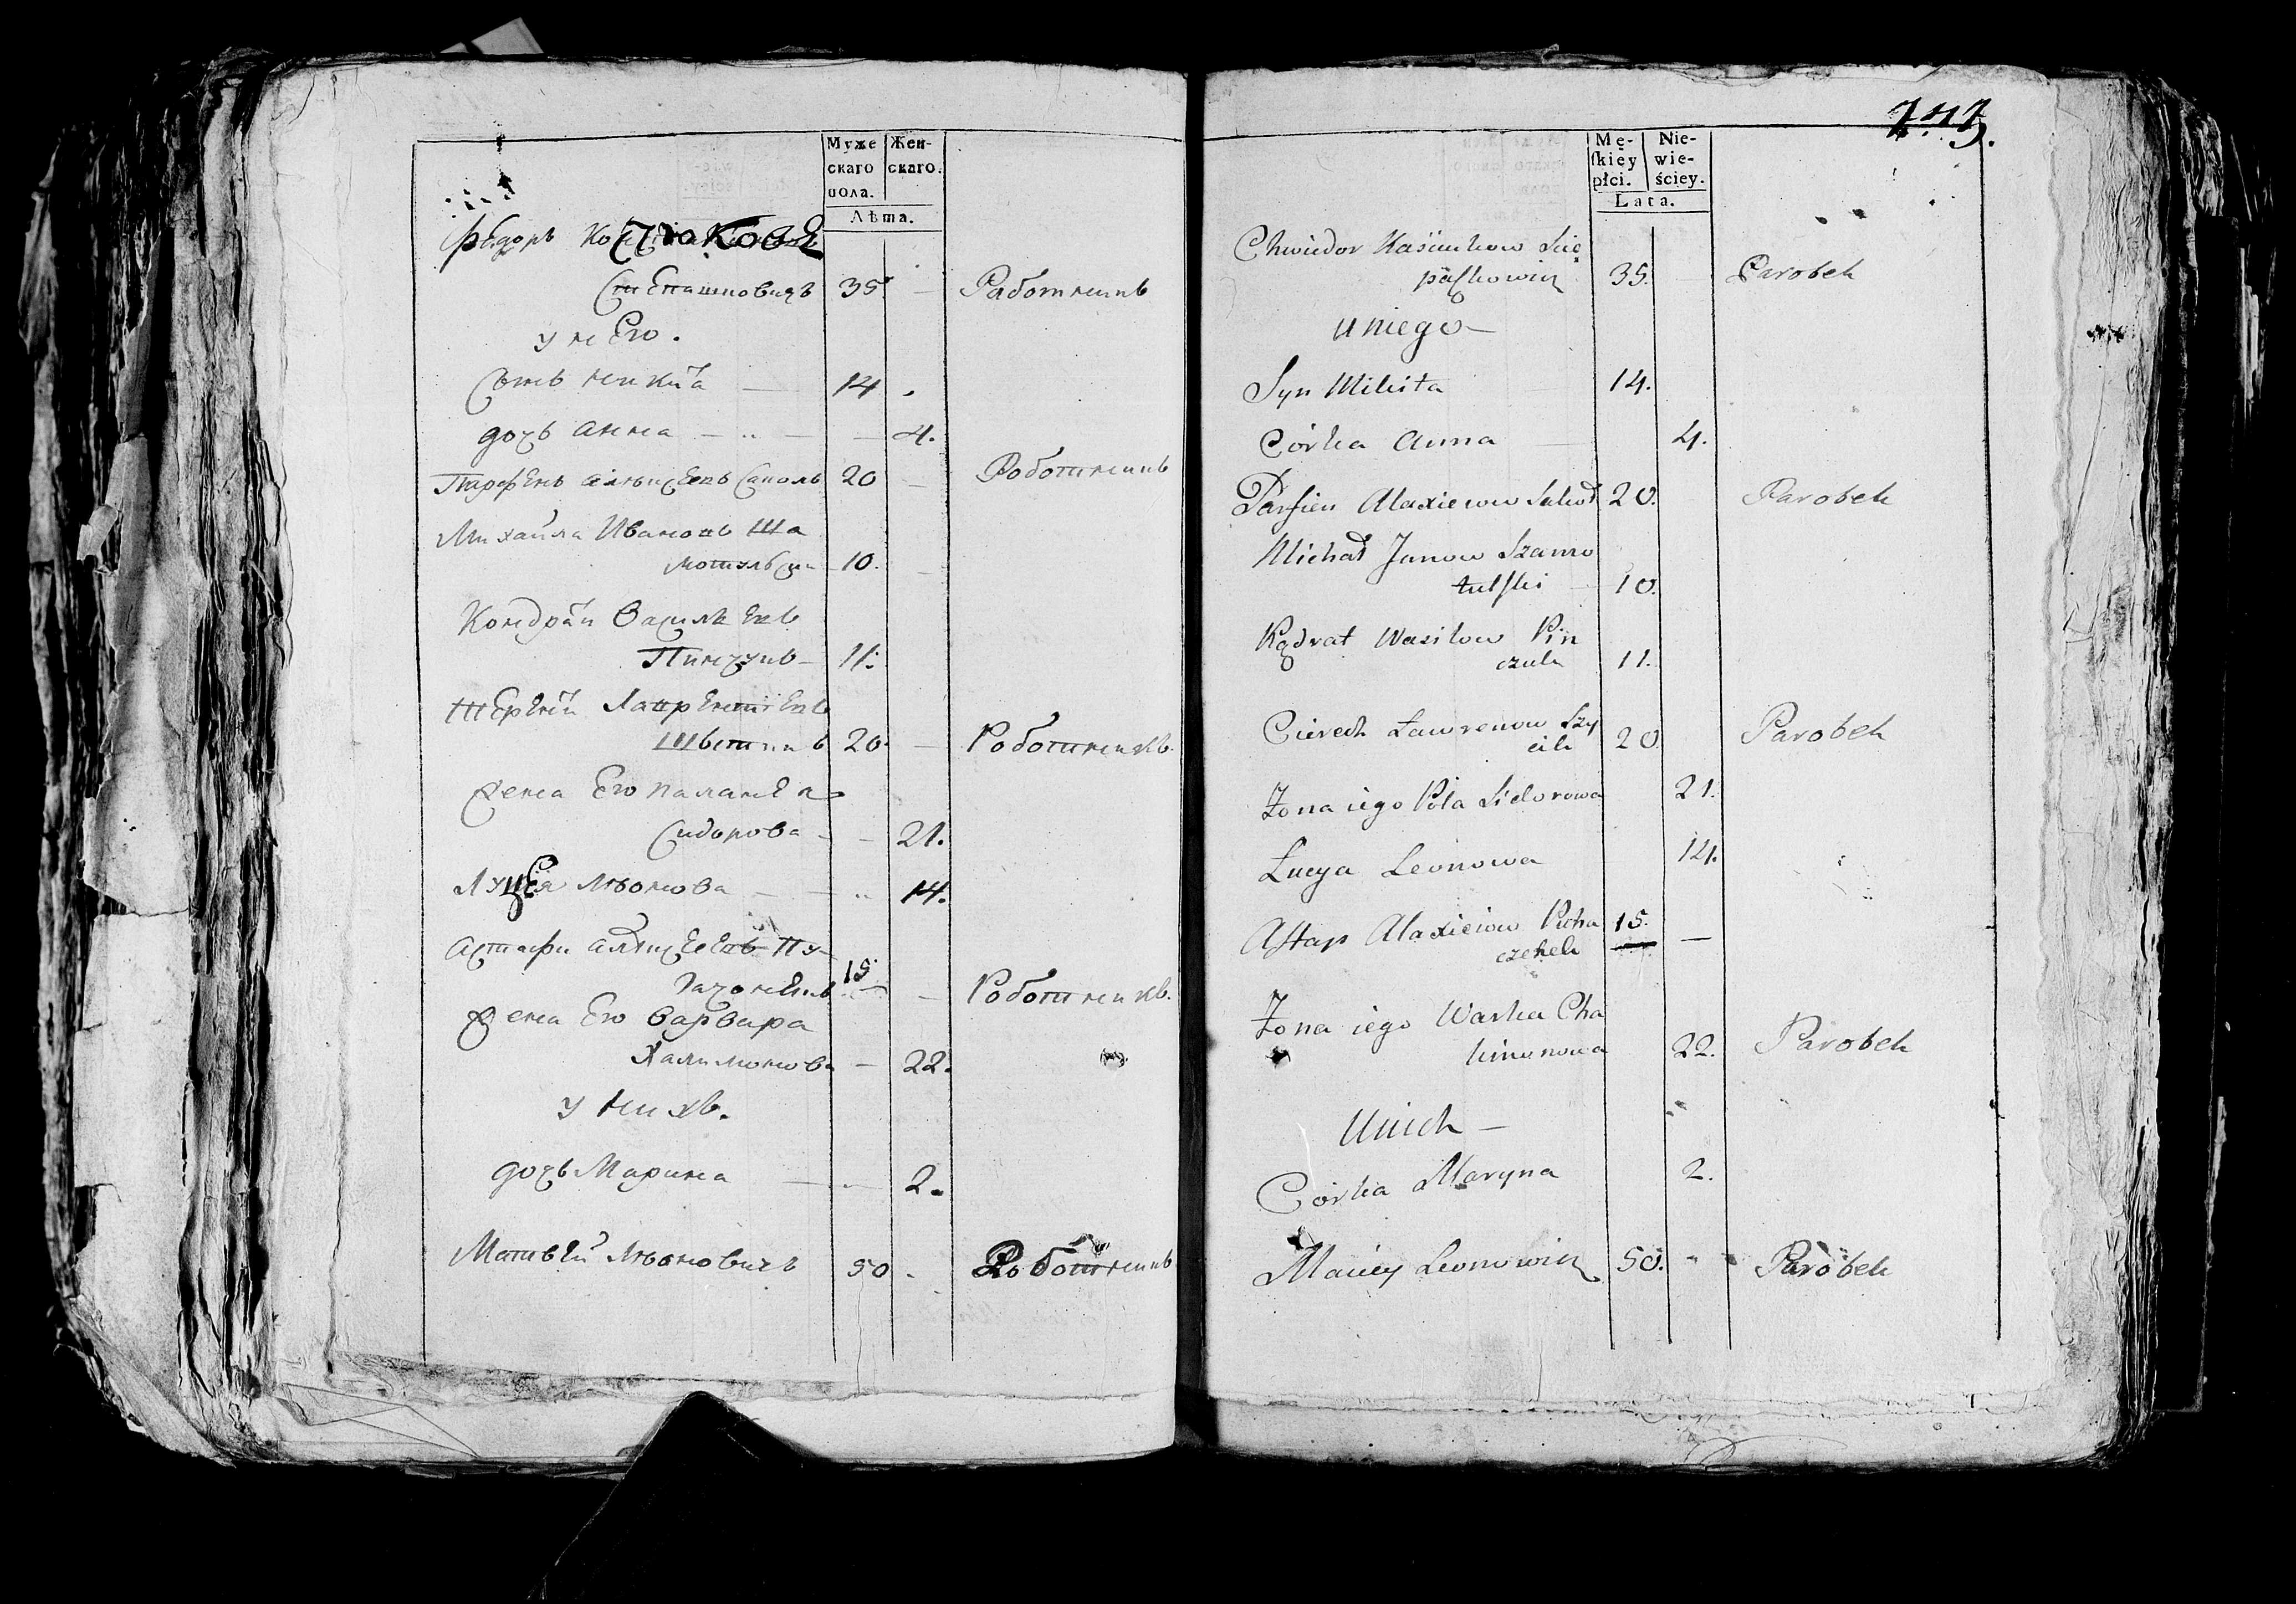 Муже
скаго
пола.
Жен-
скаго.
Лѣта.
Ѳедоръ
Степашковичъ 35 — Работникъ
у него.
Сынъ Никита — 14
дочь анна — — 4.
Парфенъ алексеевъ Саколъ 20 — Роботникъ
Михайла Ивановъ Ша
мотульски 10. —
Кондрати Василевъ
Пинчукъ — 11.
Терентей Лаврентіевъ
Шытикъ 20. — Роботникъ.
жена Его паланея
Сидорова — — 21.
Луцея Лѣонова — 14.
астафи алексеевъ Пу-
гачонекъ 15. — Роботникъ.
жена Его варвара
Халимонова — 22.
у нихъ.
дочь Марина — 2.
Матвей Лѣоновичъ 50. Роботникъ
743.
Mę-
skiey
płci.
Nie-
wie-
ściey.
Lata.
Chwiedor Kasimkow Scie
paszkowicz 35. Parobek
u niego —
Syn Mikita 14.
Córka Anna — 4.
Parfien Alaxieiow Sakoł 20. Parobek
Michał Janow Szamo
tulski — 10.
Kądrat Wasilow Pin
czuk 11.
Cierech Ławrenow Szy
cik 20. Parobek
Żona iego Pola Sidorowa 21.
Łucya Leonowa 14.
Astap Alaxieiow Puha
czenek 15. —
Żona iego Warka Cha
limonowa 22. Parobek
U nich —
Córka Maryna 2.
Maciey Leonowicz 50. Parobek